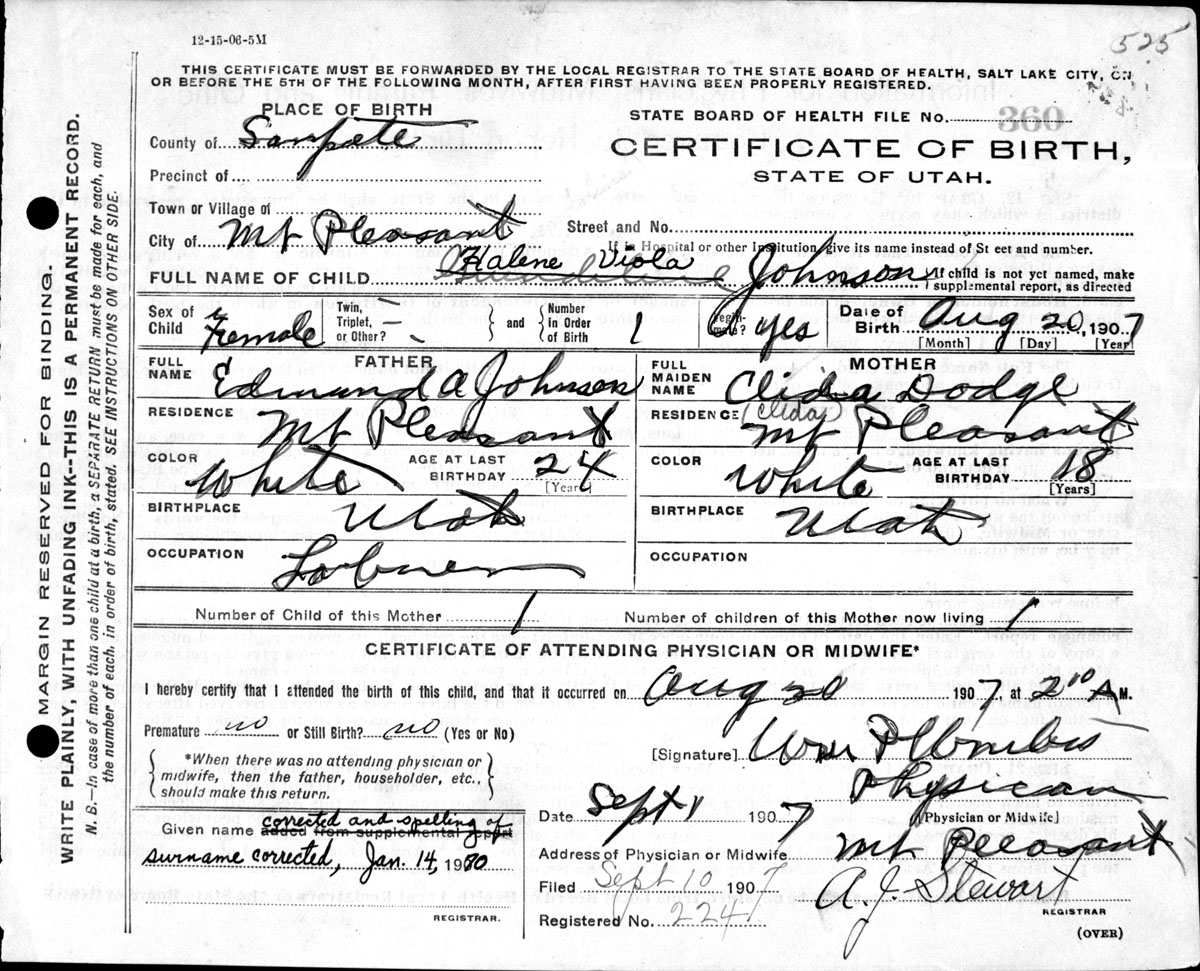 12-15-06-5M
525
THIS CERTIFICATE MUST BE FORWARDED BY THE LOCAL REGISTRAR TO THE STATE BOARD OF HEALTH, SALT LAKE CITY, ON
OR BEFORE THE 5TH OF THE FOLLOWING MONTH, AFTER FIRST HAVING BEEN PROPERLY REGISTERED.
PLACE OF BIRTH
County of Sanpete
Precinct of
Town or Village of
City of Mt Pleasant
STATE BOARD OF HEALTH FILE NO. 360
CERTIFICATE OF BIRTH,
STATE OF UTAH.
Street and No.
If in Hospital or other Institution, give its name instead of St eet and number.
FULL NAME OF CHILD Halene Viola Johnson
If child is not yet named, make
supplemental report, as directed
Sex of Child Female
Twin, Triplet, or Other? —
and
Number in Order of Birth 1
Legiti-mate? yes
Date of Birth Aug 20, 1907
[Month] [Day] [Year]
FATHER
FULL NAME Edmund A Johnson
RESIDENCE Mt Pleasant
COLOR White
AGE AT LAST BIRTHDAY 24
[Years]
BIRTHPLACE Utah
OCCUPATION Laborer
MOTHER
FULL MAIDEN NAME Clida Dodge
RESIDENCE (Clida) Mt Pleasant
COLOR White
AGE AT LAST BIRTHDAY 18
[Years]
BIRTHPLACE Utah
OCCUPATION
Number of Child of this Mother 1
Number of children of this Mother now living 1
CERTIFICATE OF ATTENDING PHYSICIAN OR MIDWIFE*
I hereby certify that I attended the birth of this child, and that it occurred on Aug 20 1907, at 2 10 A M.
Premature no or Still Birth? no (Yes or No)
*When there was no attending physician or
midwife, then the father, householder, etc.,
should make this return.
Given name added from supplemental report
corrected and spelling of
surname corrected, Jan. 14, 1980
REGISTRAR.
[Signature] Wm P
Physican
[Physician or Midwife]
Date Sept 1 1907
Address of Physician or Midwife Mt Pleasant
Filed Sept 10 1907
A. J. Stewart
REGISTRAR
Registered No. 224
(OVER)
MARGIN RESERVED FOR BINDING.
WRITE PLAINLY, WITH UNFADING INK--THIS IS A PERMANENT RECORD.
N. B.—In case of more than one child at a birth, a SEPARATE RETURN must be made for each, and
the number of each, in order of birth, stated. SEE INSTRUCTIONS ON OTHER SIDE.